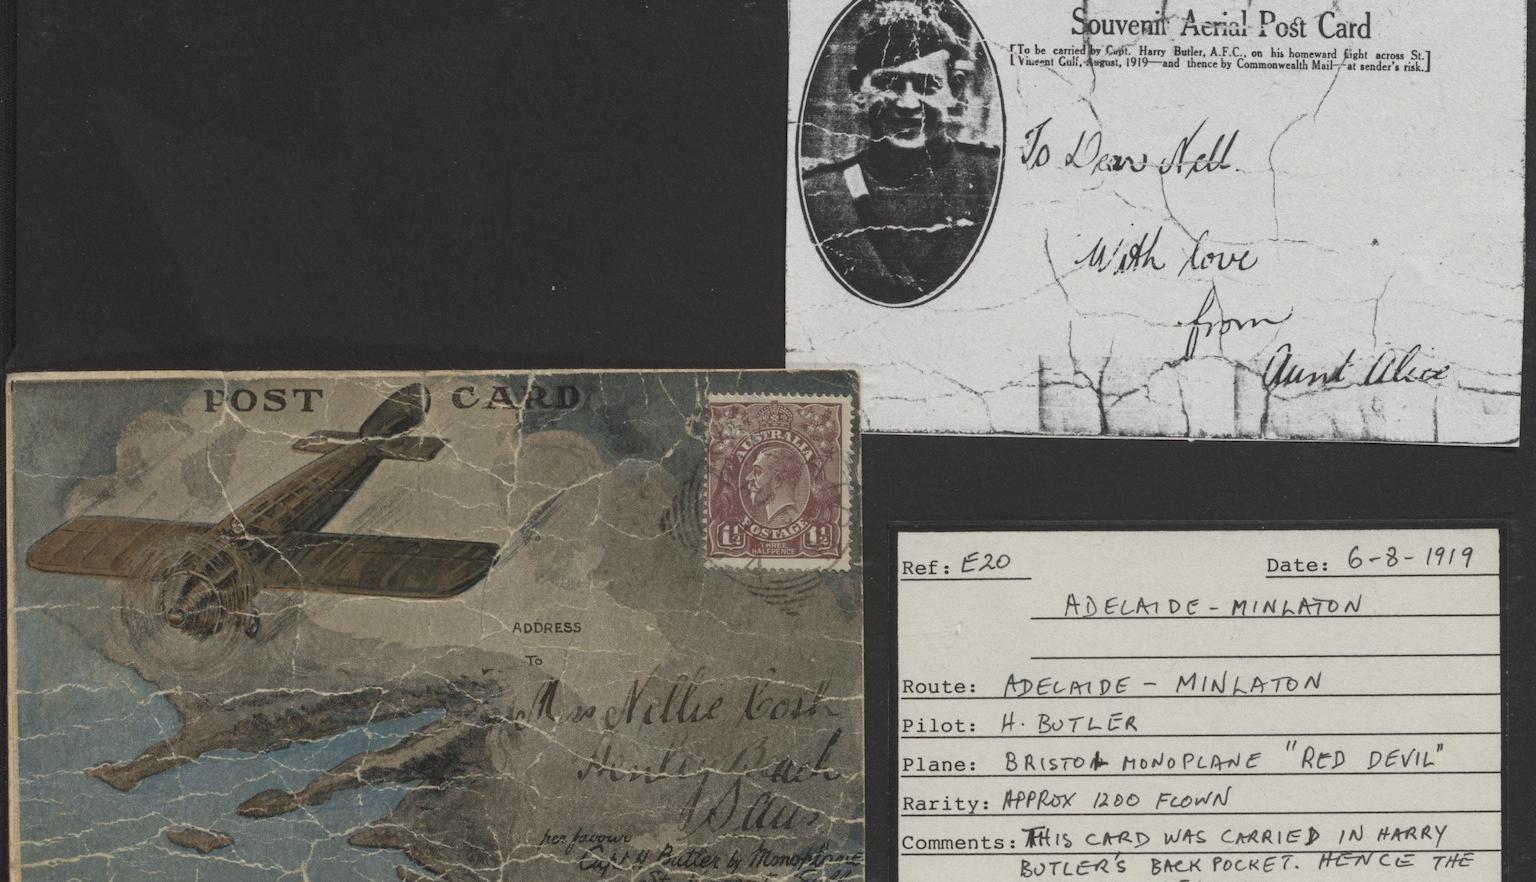 Souvenir Aerial Post Card
[To be carried by Capt. Harry Butler, A.F.C., on his homeward flight across St.
Vincent Gulf, August, 1919—and thence by Commonwealth Mail—at sender's risk.]
To Dear Nell.
With love
from
Aunt Alice
POST CARD
AUSTRALIA
POSTAGE
1½ 1½
THREE
HALFPENCE
ADDRESS
To
Nellie Cosh
Henley Beach
S Aus
per favour
Capt H Butler by Monoplane
Gulf
Ref: E20
Date: 6-8-1919
ADELAIDE - MINLATON
Route: ADELAIDE - MINLATON
Pilot: H. BUTLER
Plane: BRISTOL MONOPLANE "RED DEVIL"
Rarity: APPROX 1200 FLOWN
Comments: THIS CARD WAS CARRIED IN HARRY
BUTLER'S BACK POCKET. HENCE THE